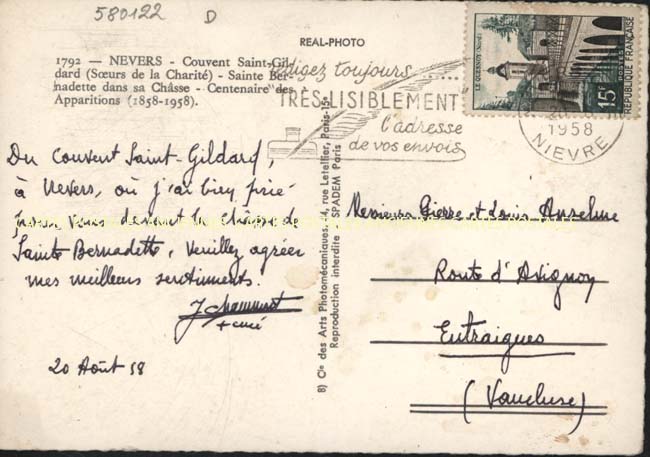 580122 D
REAL-PHOTO
1792 — NEVERS - Couvent Saint-Gil-
dard (Sœurs de la Charité) - Sainte Ber-
nadette dans sa Châsse - Centenaire des
Apparitions (1858-1958).
toujours
TRÈS LISIBLEMENT
l'adresse
de vos envois
LE QUESNOY (Nord)
POSTES
15F
RÉPUBLIQUE FRANÇAISE
1958
NIEVRE
Du Couvent Saint-Gildard,
à Nevers, où j'ai bien prié
pour vous devant la châsse de
Sainte Bernadette, Veuillez agréer
mes meilleurs sentiments.
+ curé
20 Août 58
8) Cie des Arts Photomécaniques, 44, rue Letellier, Paris-15e
Reproduction interdite SPADEM Paris
Messieurs Pierre et Louis Anselme
Route d'Avignon
Entraigues
(Vaucluse)